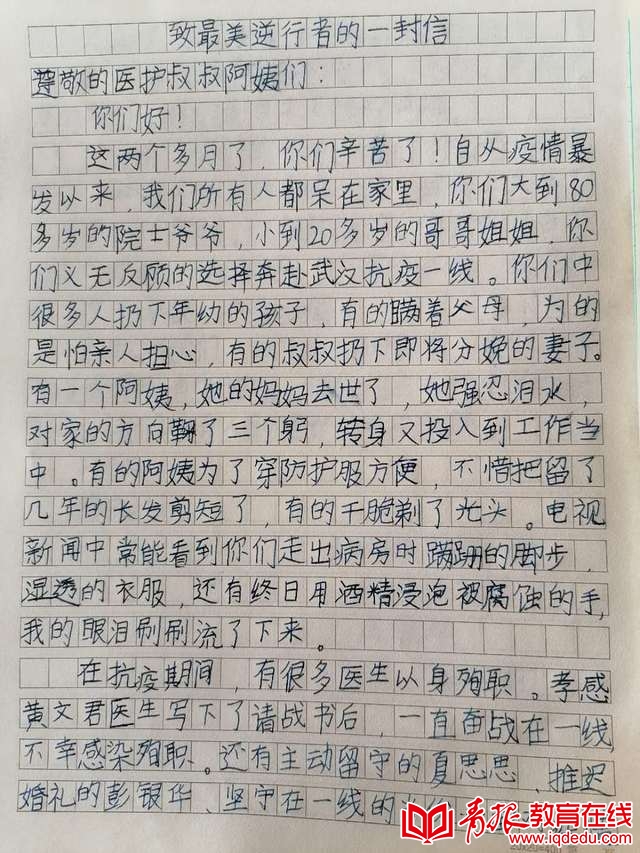 致最美逆行者的一封信
尊敬的医护叔叔阿姨们：
你们好！
这两个多月了，你们辛苦了！自从疫情暴
发以来，我们所有人都呆在家里，你们大到80
多岁的院士爷爷，小到20多岁的哥哥姐姐，你
们义无反顾的选择奔赴武汉抗疫一线。你们中
很多人扔下年幼的孩子，有的瞒着父母，为的
是怕亲人担心，有的叔叔扔下即将分娩的妻子。
有一个阿姨，她的妈妈去世了，她强忍泪水，
对家的方向鞠了三个躬，转身又投入到工作当
中。有的阿姨为了穿防护服方便，不惜把留了
几年的长发剪短了，有的干脆剃了光头。电视
新闻中常能看到你们走出病房时蹒跚的脚步，
湿透的衣服，还有终日用酒精浸泡被腐蚀的手，
我的眼泪刷刷流了下来。
在抗疫期间，有很多医生以身殉职。孝感
黄文君医生写下了请战书后，一直奋战在一线
不幸感染殉职。还有主动留守的夏思思、推迟
婚礼的彭银华、坚守在一线的
青报教育在线
www.iqdedu.com